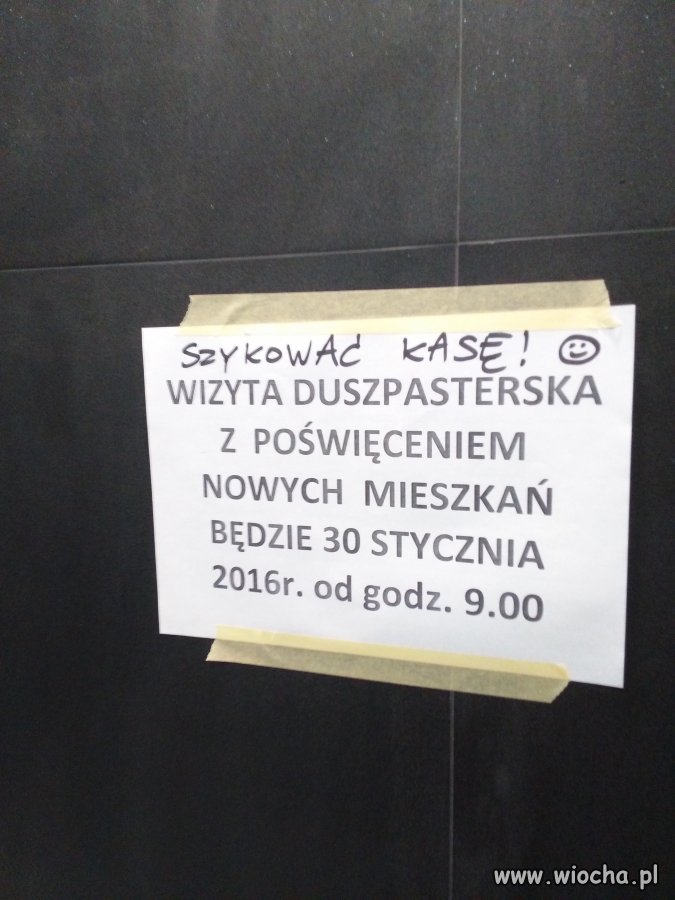 SZYKOWAĆ KASĘ! ☺
WIZYTA DUSZPASTERSKA
Z POŚWIĘCENIEM
NOWYCH MIESZKAŃ
BĘDZIE 30 STYCZNIA
2016r. od godz. 9.00
www.wiocha.pl